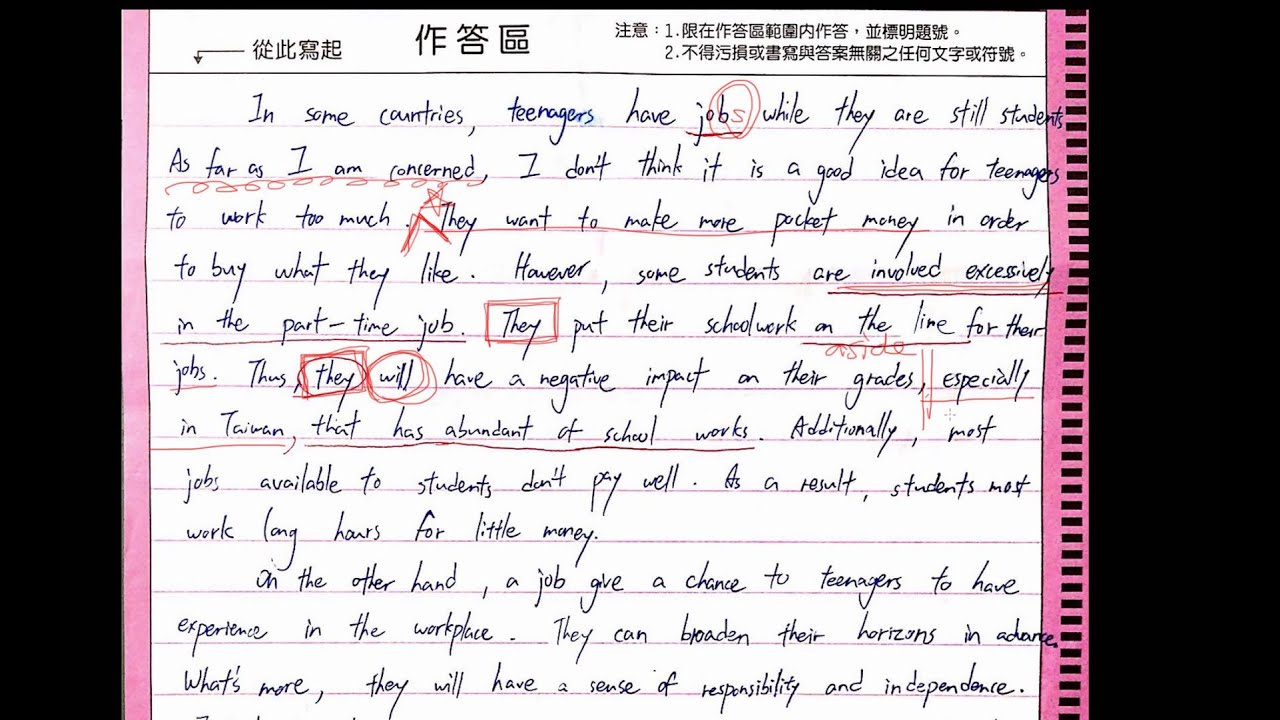 從此寫起
作答區
注意：1.限在作答區範圍內作答，並標明題號。
2.不得污損或書寫與答案無關之任何文字或符號。
In some countries, teenagers have jobs while they are still students
As far as I am concerned, I don't think it is a good idea for teenagers
to work too much. They want to make more pocket money in order
to buy what they like. However, some students are involved excessively
in the part-time job. They put their schoolwork on the line for their
aside
jobs. Thus, they will have a negative impact on their grades, especially
in Taiwan, that has abundant of school works. Additionally, most
jobs available to students don't pay well. As a result, students most
work long hours for little money.
On the other hand, a job give a chance to teenagers to have
experience in the workplace. They can broaden their horizons in advance.
What's more, they will have a sense of responsibility and independence.